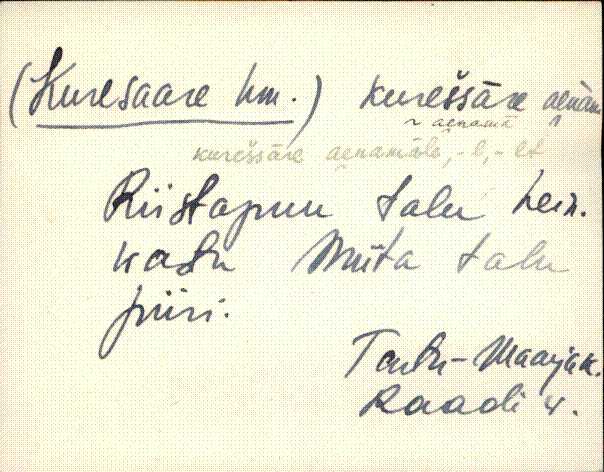 (Kuresaare hm.) kureššāre aenàm
~ aenamā
kureššāre aenamāle, -l, -lt
Riistapuu talu hein.
katu Miita talu
piiri.
Tartu-Maarjak.
Raadi v.